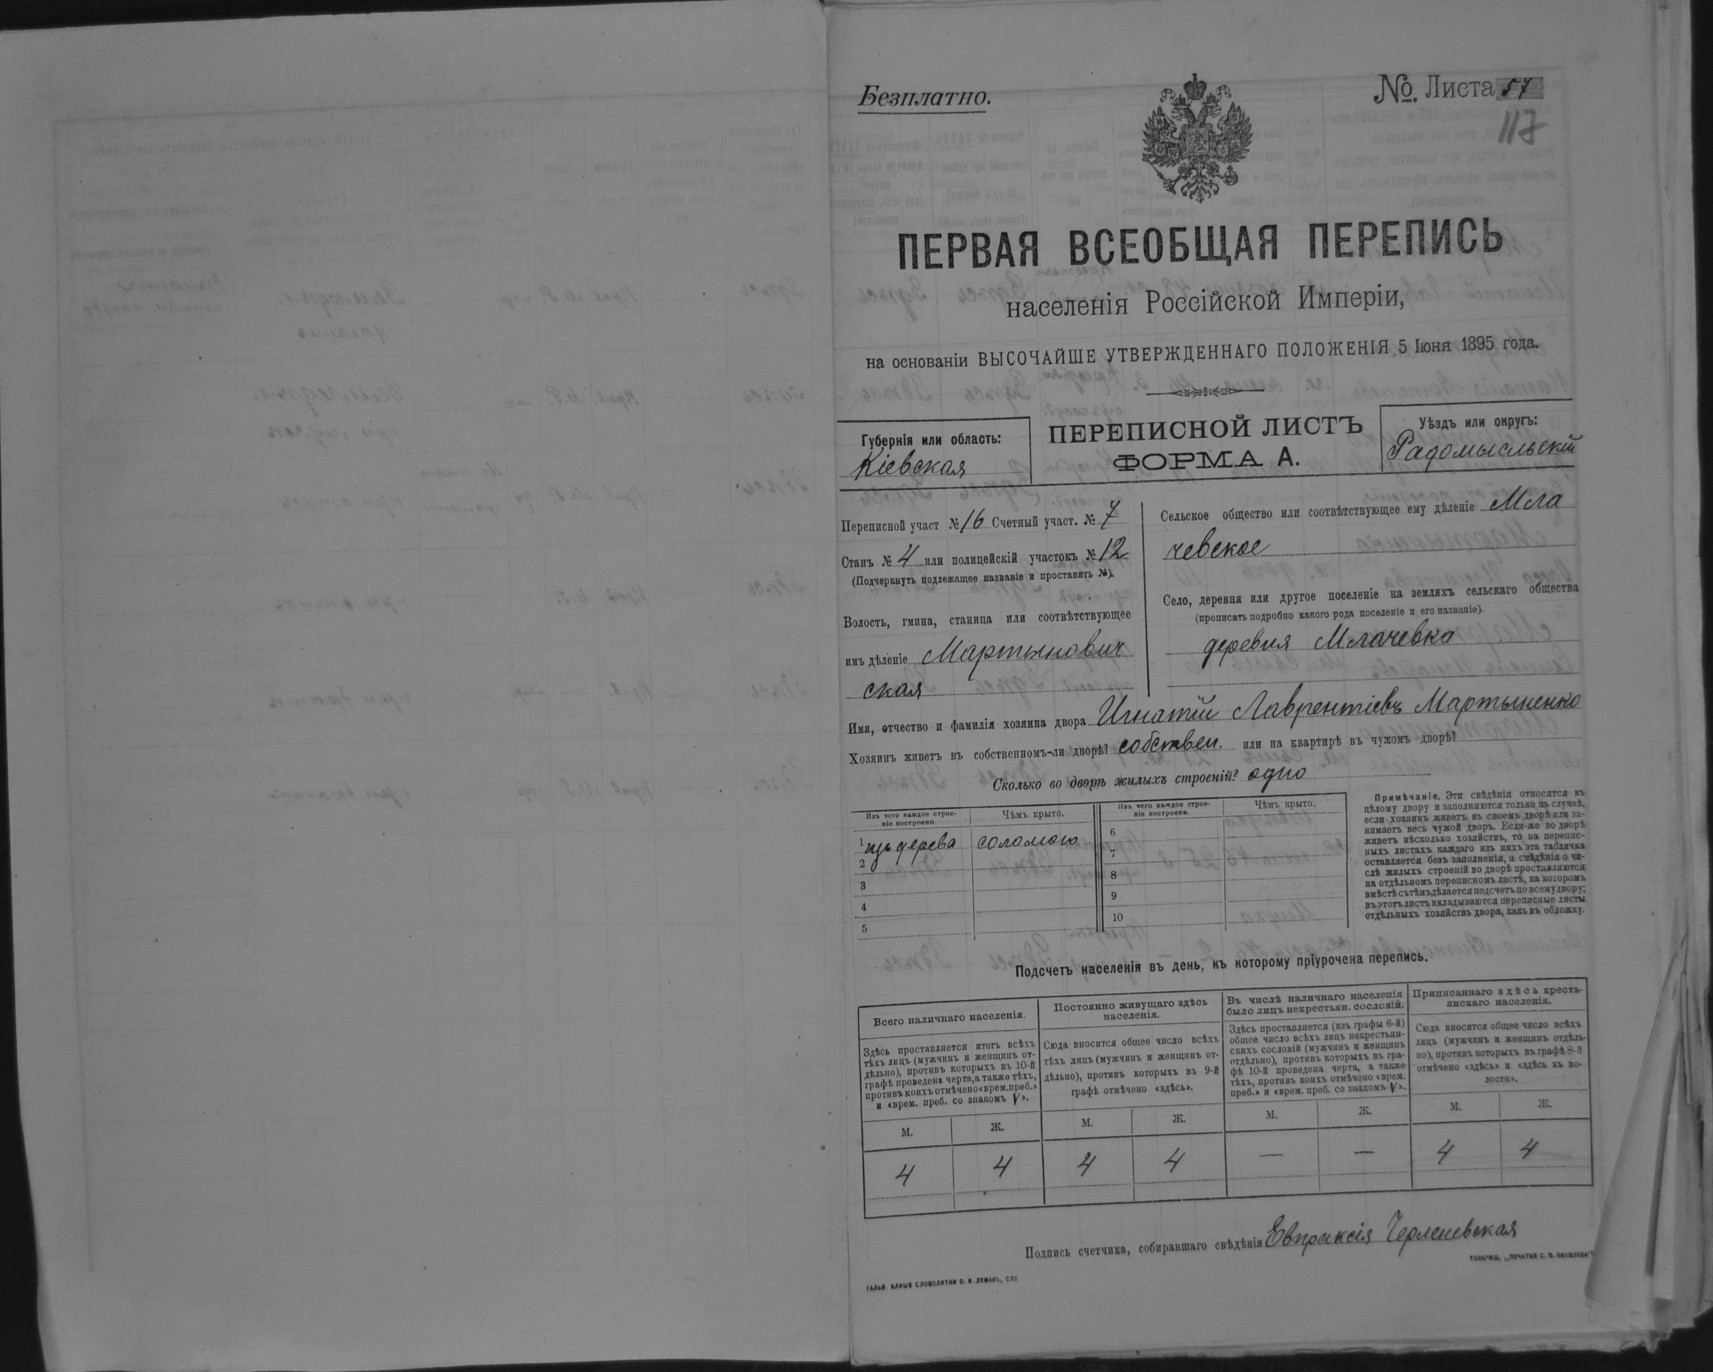 Безплатно.
№. Листа 57
117
ПЕРВАЯ ВСЕОБЩАЯ ПЕРЕПИСЬ
населенія Россійской Имперіи,
на основаніи ВЫСОЧАЙШЕ УТВЕРЖДЕННАГО ПОЛОЖЕНІЯ 5 Іюня 1895 года.
Губернія или область:
Кіевская
ПЕРЕПИСНОЙ ЛИСТЪ
ФОРМА А.
Уѣздъ или округъ:
Радомысльскій
Переписной участ № 16 Счетный участ. № 7
Станъ № 4 или полицейскій участокъ № 12
(Подчеркнуть подлежащее названіе и проставить №).
Волость, гмина, станица или соотвѣтствующее
имъ дѣленіе Мартынович
ская
Сельское общество или соотвѣтствующее ему дѣленіе Мла
чевское
Село, деревня или другое поселеніе на земляхъ сельскаго общества
(прописать подробно какого рода поселеніе и его названіе)
деревня Млачевка
Имя, отчество и фамилія хозяина двора Игнатій Лаврентіевъ Мартыненко
Хозяинъ живетъ въ собственномъ-ли дворѣ? собствен. или на квартирѣ въ чужомъ дворѣ?
Сколько во дворѣ жилыхъ строеній? одно
Изъ чего каждое строе-
ніе построено.
Чѣмъ крыто.
Изъ чего каждое строе-
ніе построено.
Чѣмъ крыто.
1 изъ дерева соломою
2
3
4
5
6
7
8
9
10
Примѣчаніе. Эти свѣдѣнія относятся къ
цѣлому двору и заполняются только въ случаѣ,
если хозяинъ живетъ въ своемъ дворѣ или за-
нимаетъ весь чужой дворъ. Если-же во дворѣ
живетъ нѣсколько хозяйствъ, то на перепис-
ныхъ листахъ каждаго изъ нихъ эта табличка
оставляется безъ заполненія, а свѣдѣнія о чи-
слѣ жилыхъ строеній во дворѣ проставляются
на отдѣльномъ переписномъ листѣ, на которомъ
вмѣстѣ съ тѣмъ дѣлается подсчетъ по всему двору;
въ этотъ листъ вкладываются переписные листы
отдѣльныхъ хозяйствъ двора, какъ въ обложку.
Подсчетъ населенія въ день, къ которому пріурочена перепись.
Всего наличнаго населенія.
Здѣсь проставляется итогъ всѣхъ
тѣхъ лицъ (мужчинъ и женщинъ от-
дѣльно), противъ которыхъ въ 10-й
графѣ проведена черта, а также тѣхъ,
противъ коихъ отмѣчено «врем. преб.»
и «врем. преб. со знакомъ V».
Постоянно живущаго здѣсь
населенія.
Сюда вносится общее число всѣхъ
тѣхъ лицъ (мужчинъ и женщинъ от-
дѣльно), противъ которыхъ въ 9-й
графѣ отмѣчено «здѣсь».
Въ числѣ наличнаго населенія
было лицъ некрестьян. сословій.
Здѣсь проставляется (изъ графы 6-й)
общее число всѣхъ лицъ некрестьян-
скихъ сословій (мужчинъ и женщинъ
отдѣльно), противъ которыхъ въ гра-
фѣ 10-й проведена черта, а также
тѣхъ, противъ коихъ отмѣчено «врем.
преб.» и «врем. преб. со знакомъ V».
Приписаннаго здѣсь кресть-
янскаго населенія.
Сюда вносится общее число всѣхъ
лицъ (мужчинъ и женщинъ отдѣль-
но), противъ которыхъ въ графѣ 8-й
отмѣчено «здѣсь» и «здѣсь въ во-
лости».
М. Ж. М. Ж. М. Ж. М. Ж.
4 4 4 4 — — 4 4
Подпись счетчика, собиравшаго свѣдѣнія Евпраксія
ГАЛЬВ. КЛИШЕ СЛОВОЛИТНИ О. И. ЛЕМАНЪ, СПБ
ТОВАРИЩ. „ПЕЧАТНЯ С. П. ЯКОВЛЕВА"